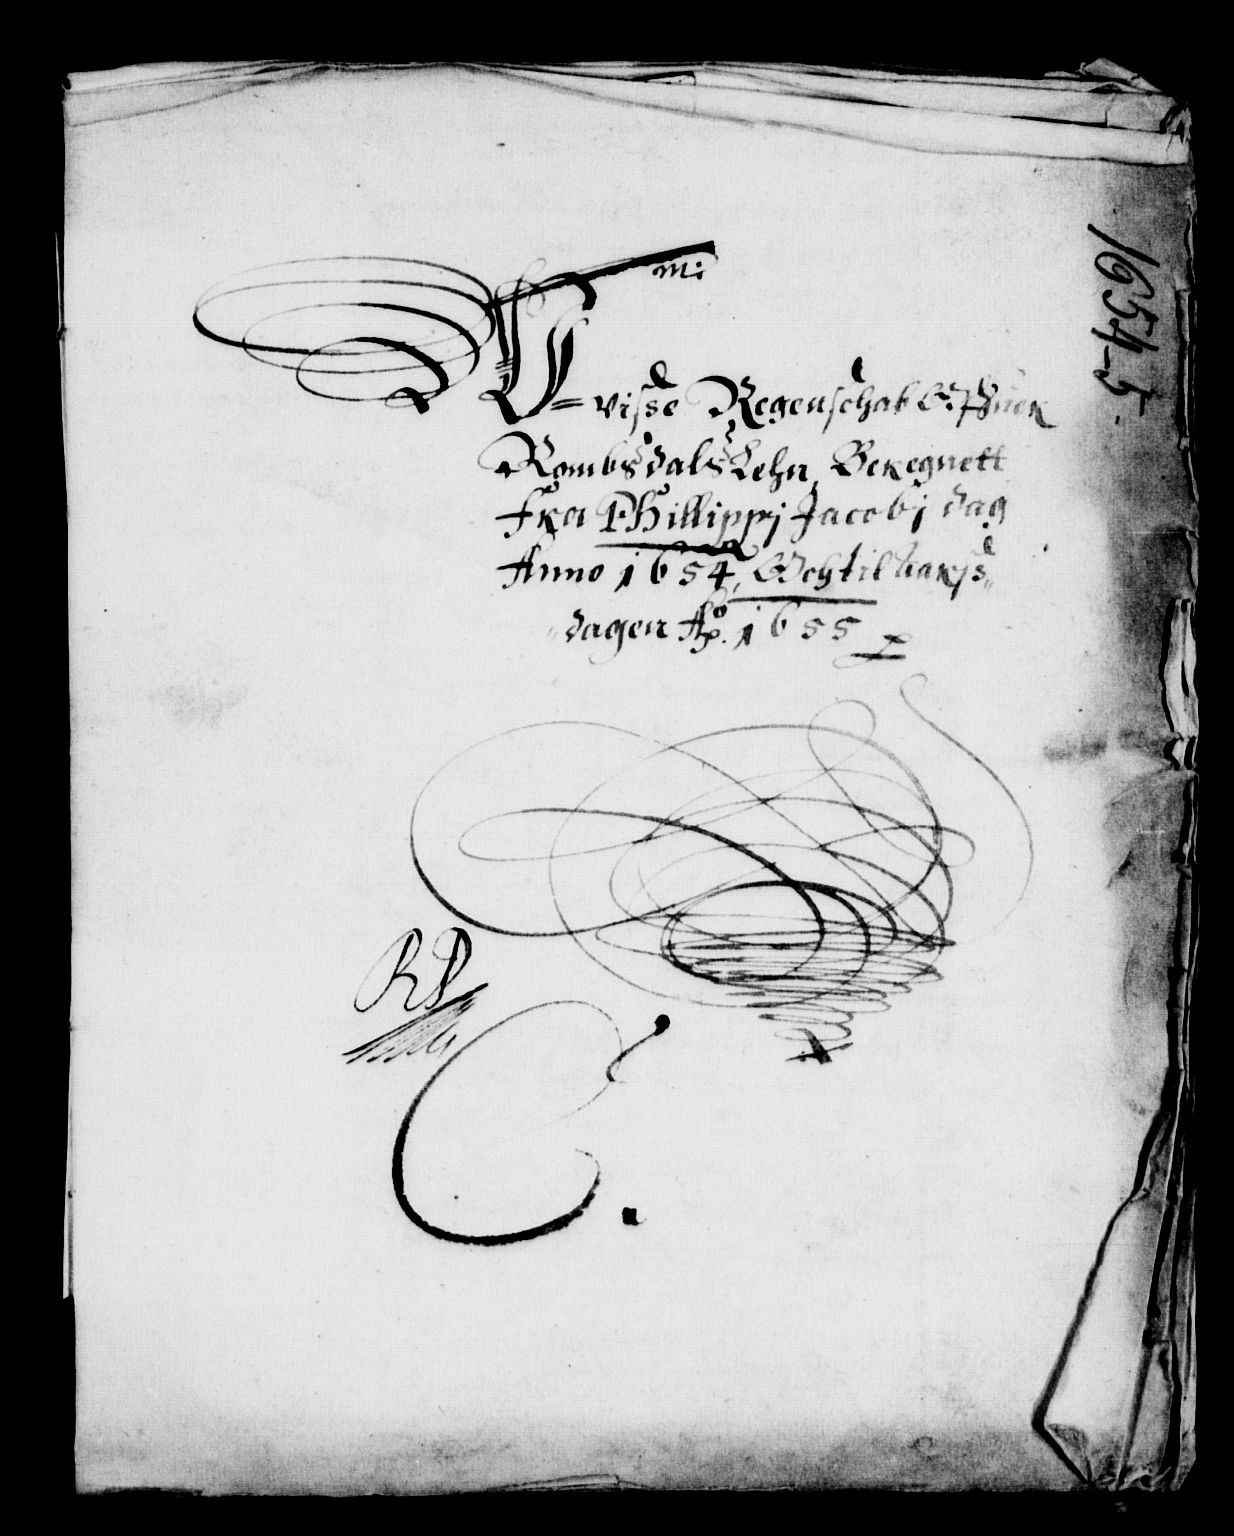 m:
U=visse Regenschab
Rombsdals Lehn, Beregnett
Fra Phillippj Jacobj dag
Anno 1654, Och til aars
dagen Ao. 1655
1654-5.
RP
C.